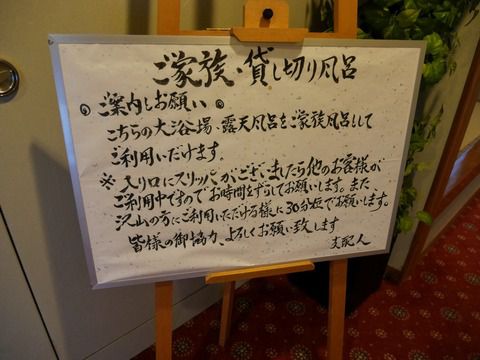 ご家族・貸し切り風呂
◎ご案内しお願い◎
こちらの大浴場、露天風呂をご家族風呂として
ご利用いただけます。
※入り口にスリッパがございましたら他のお客様が
ご利用中ですのでお時間をずらしてお願いします。また
沢山の方にご利用いただける様に30分位でお願いします。
皆様の御協力、よろしくお願い致します
支配人